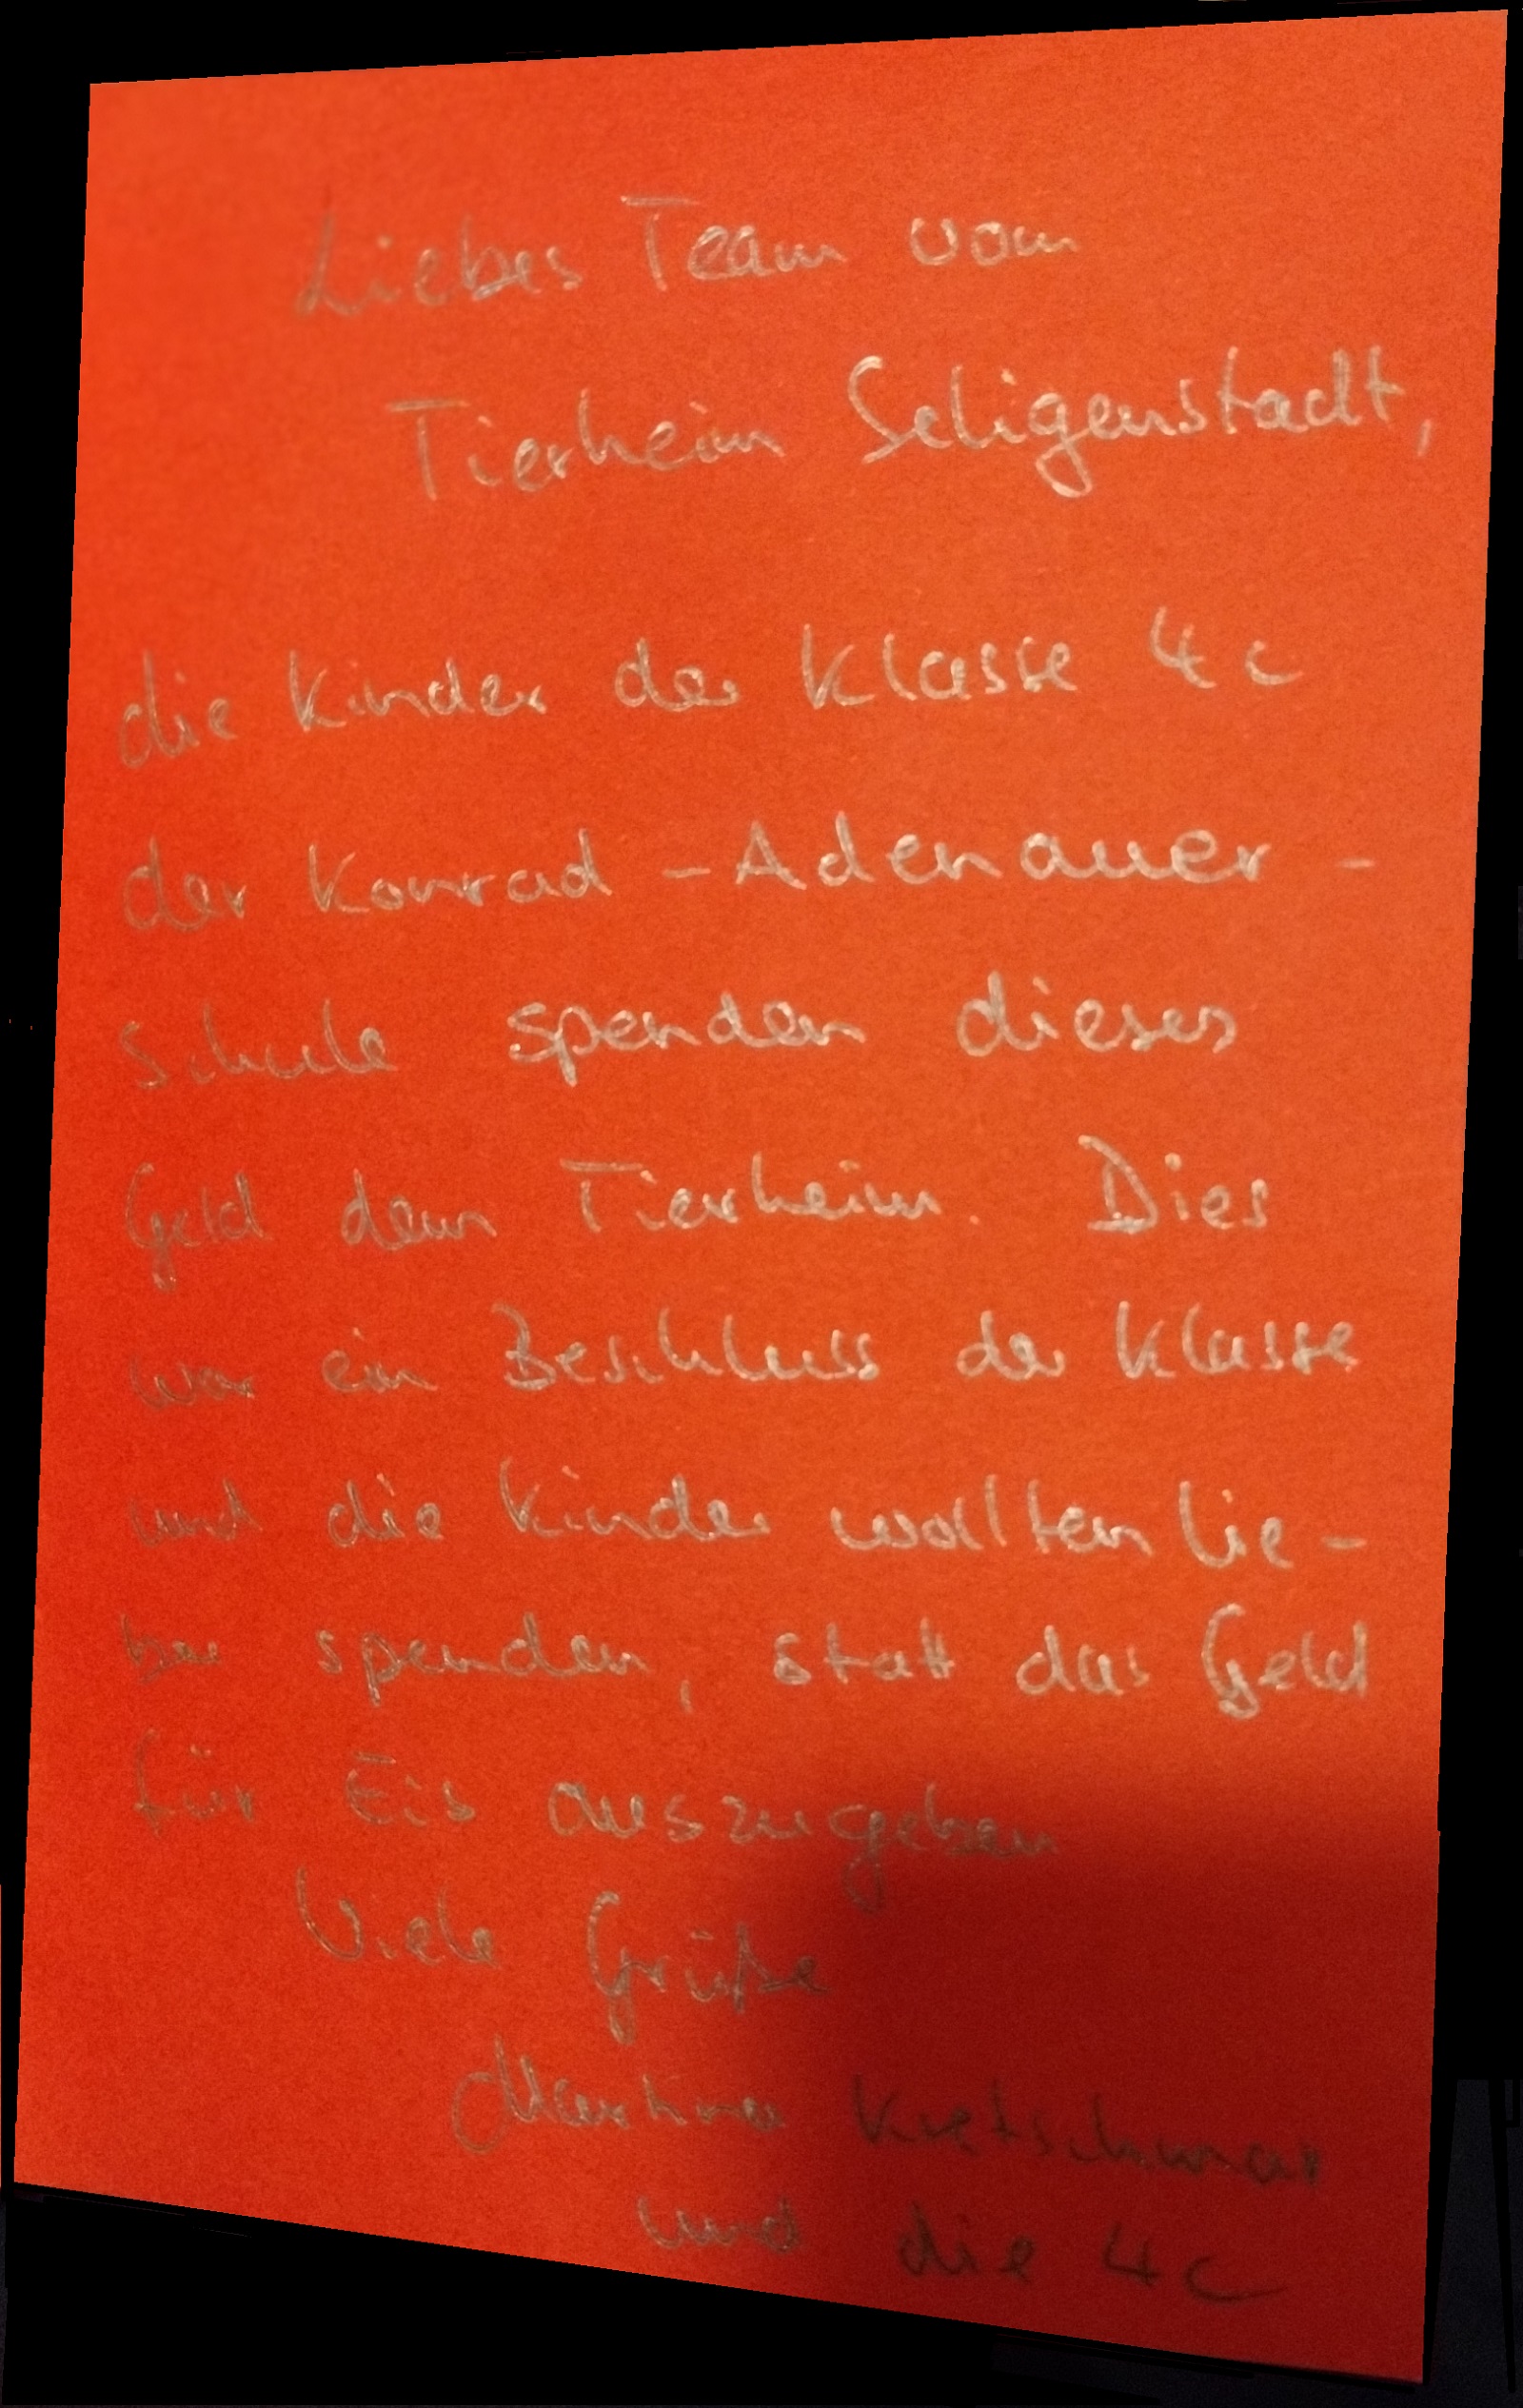 Liebes Team vom
Tierheim Seligenstadt,
die Kinder der Klasse 4c
der Konrad-Adenauer-
Schule spenden dieses
Geld dem Tierheim. Dies
war ein Beschluss der Klasse
und die Kinder wollten lie-
ber spenden, statt das Geld
für Eis auszugeben
Viele Grüße
Martina Kretschmar
und die 4c